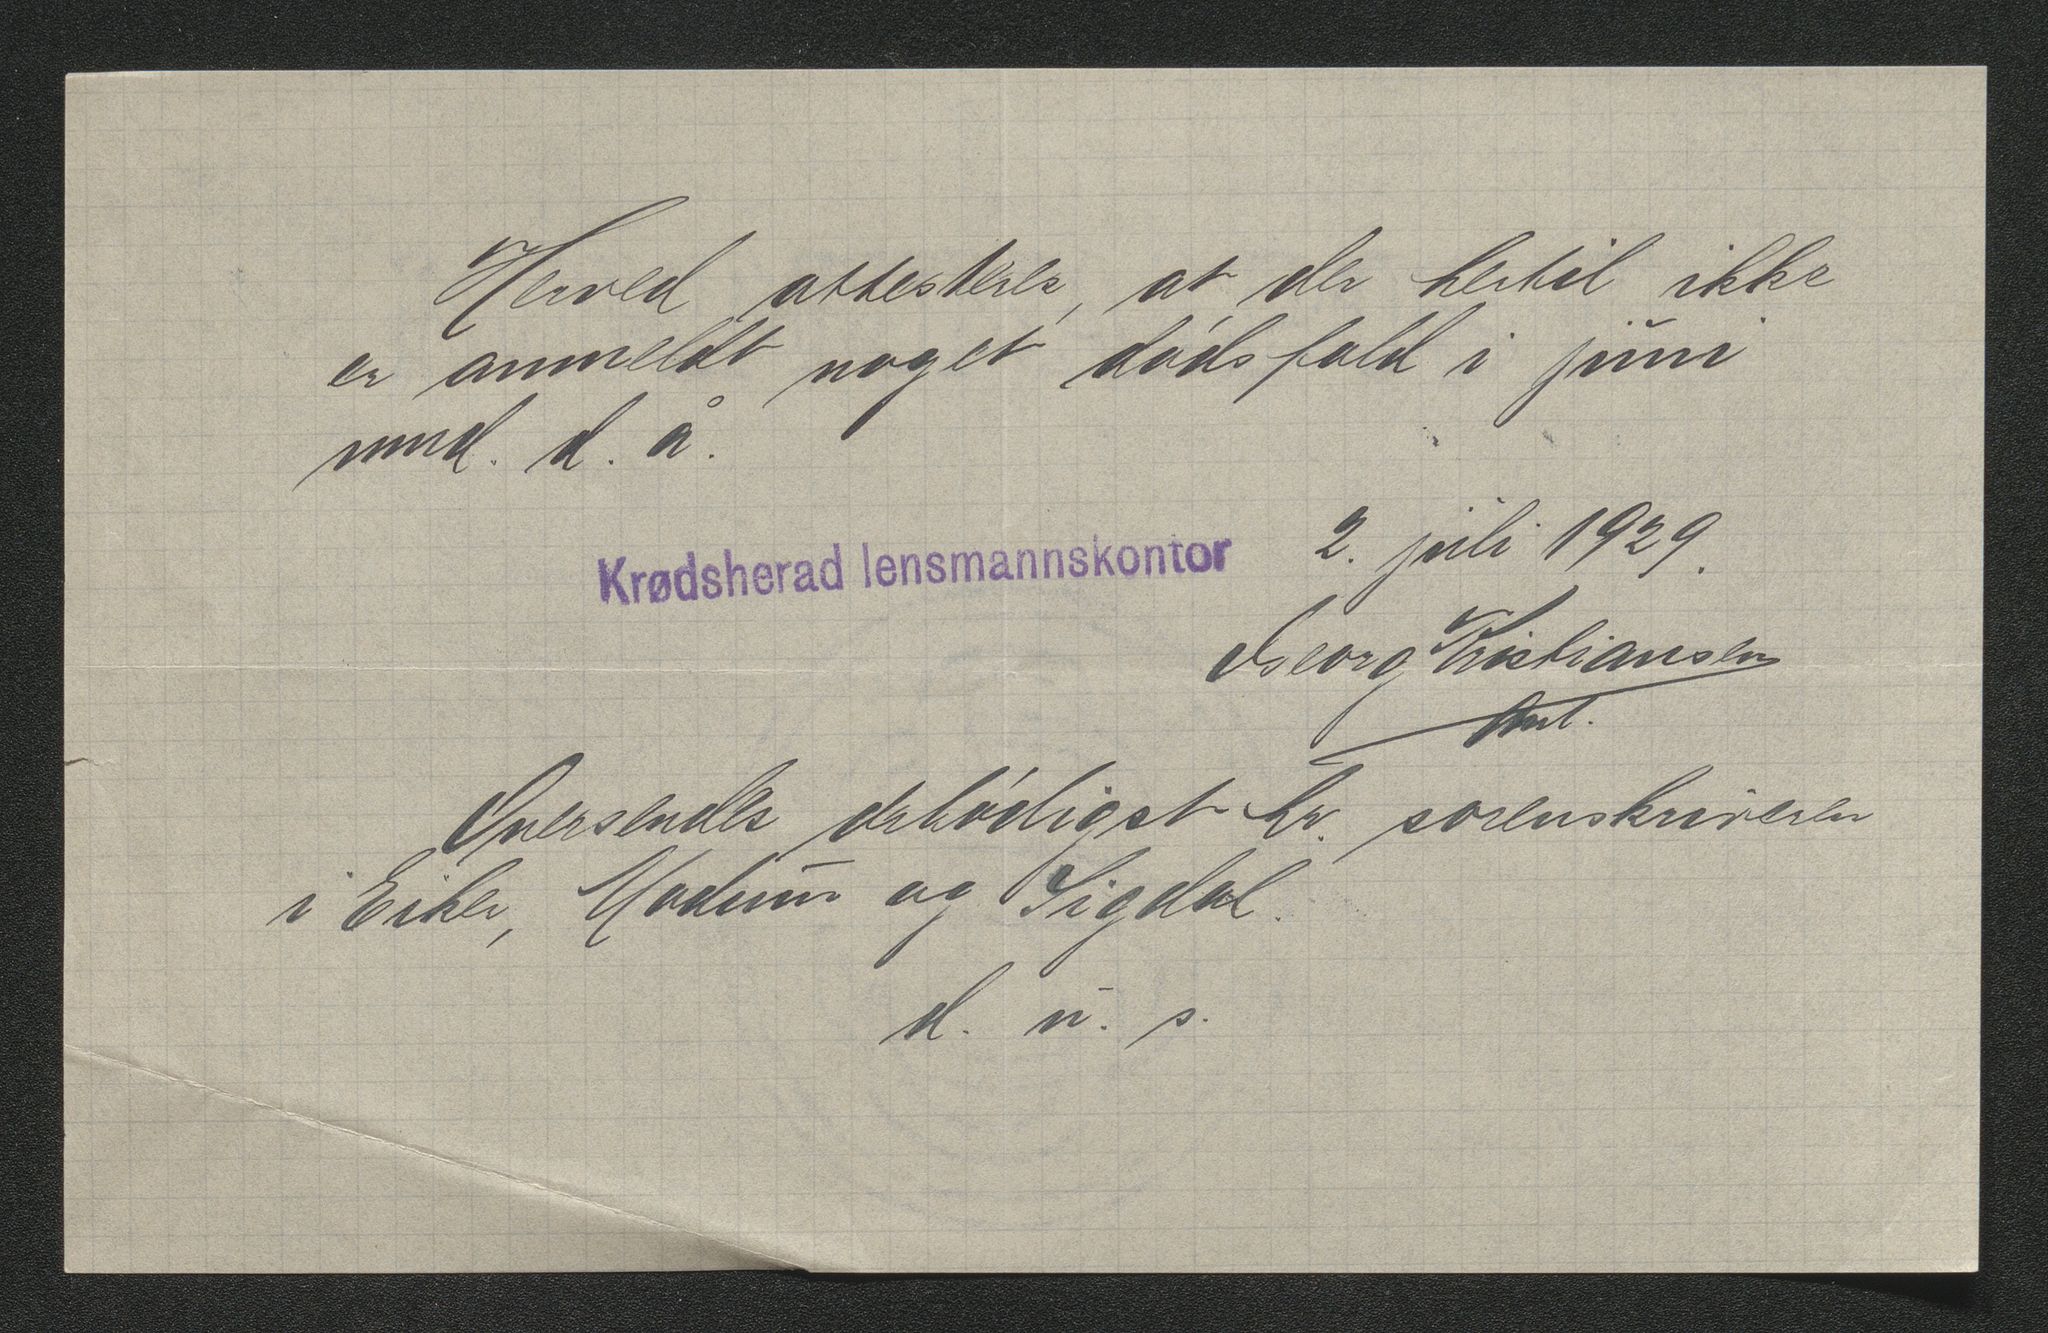 Herved attesteres, at der hertil ikke
er anmeldt noget dødsfald i juni
mnd. d. å.
Krødsherad lensmannskontor 2. juli 1929.
Georg Kristiansen
fmt.
Oversendes ærbødigst hr. sorenskriveren
i Eiker, Modum og Sigdal.
d. u. s.